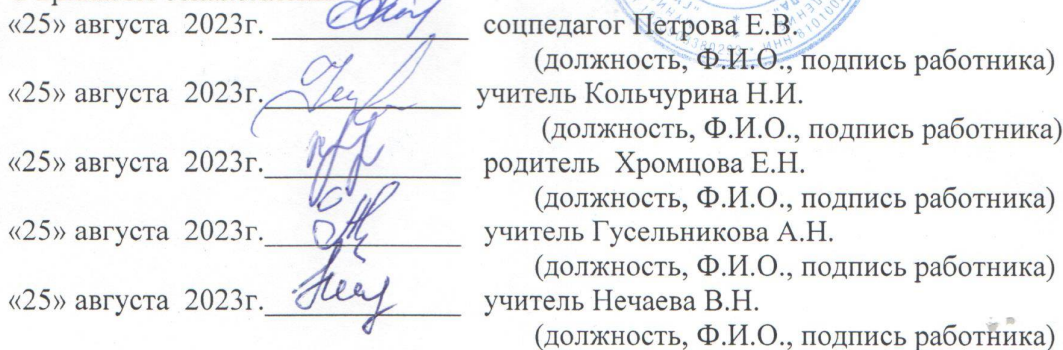 «25» августа 2023г. соцпедагог Петрова Е.В.
(должность, Ф.И.О., подпись работника)
«25» августа 2023г. учитель Кольчурина Н.И.
(должность, Ф.И.О., подпись работника)
«25» августа 2023г. родитель Хромцова Е.Н.
(должность, Ф.И.О., подпись работника)
«25» августа 2023г. учитель Гусельникова А.Н.
(должность, Ф.И.О., подпись работника)
«25» августа 2023г. учитель Нечаева В.Н.
(должность, Ф.И.О., подпись работника)